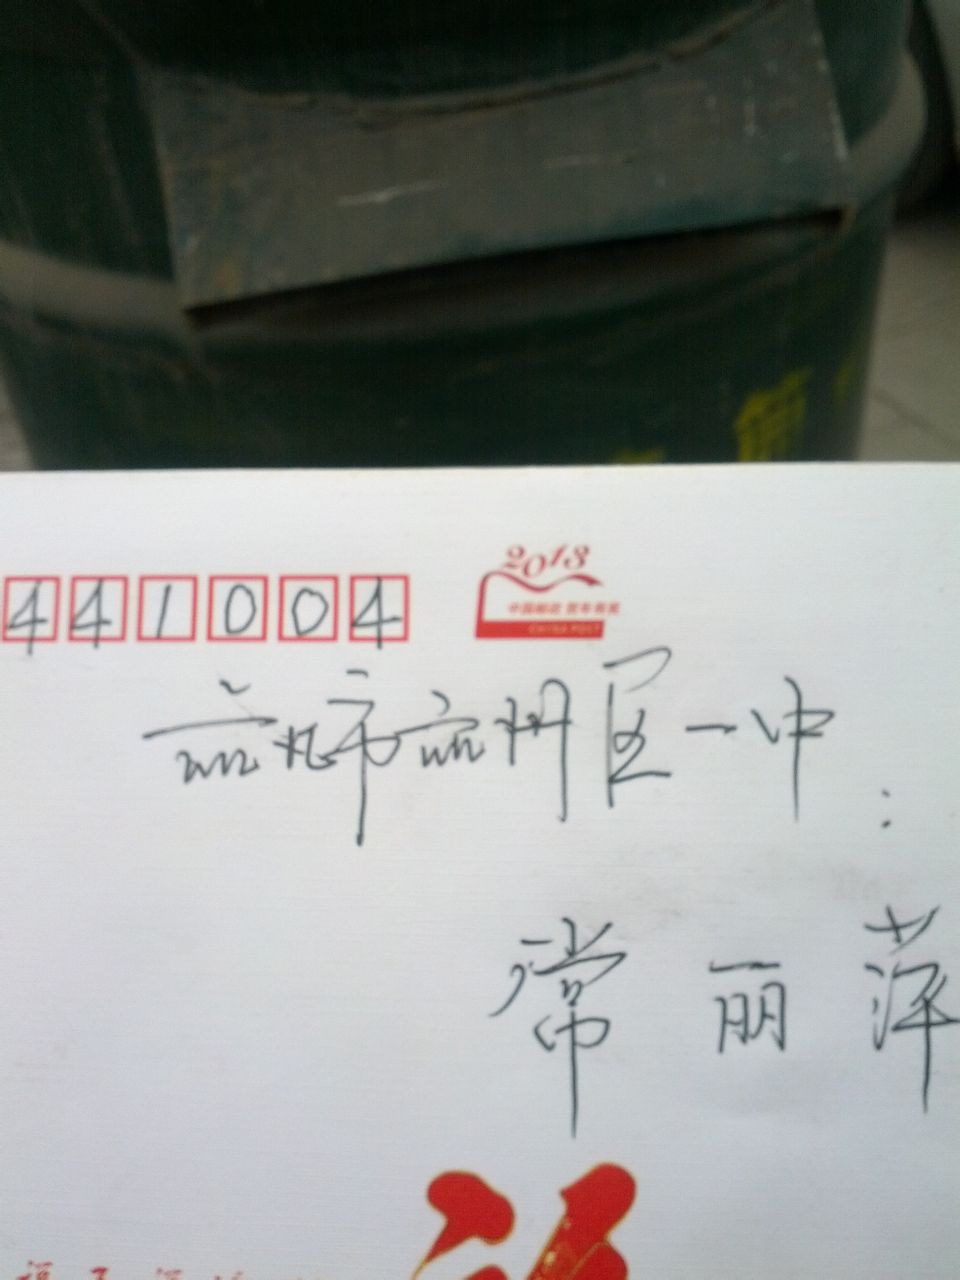 2013
中国邮政 贺年有奖
CHINA POST
441004
襄阳市襄州区一中:
常丽萍